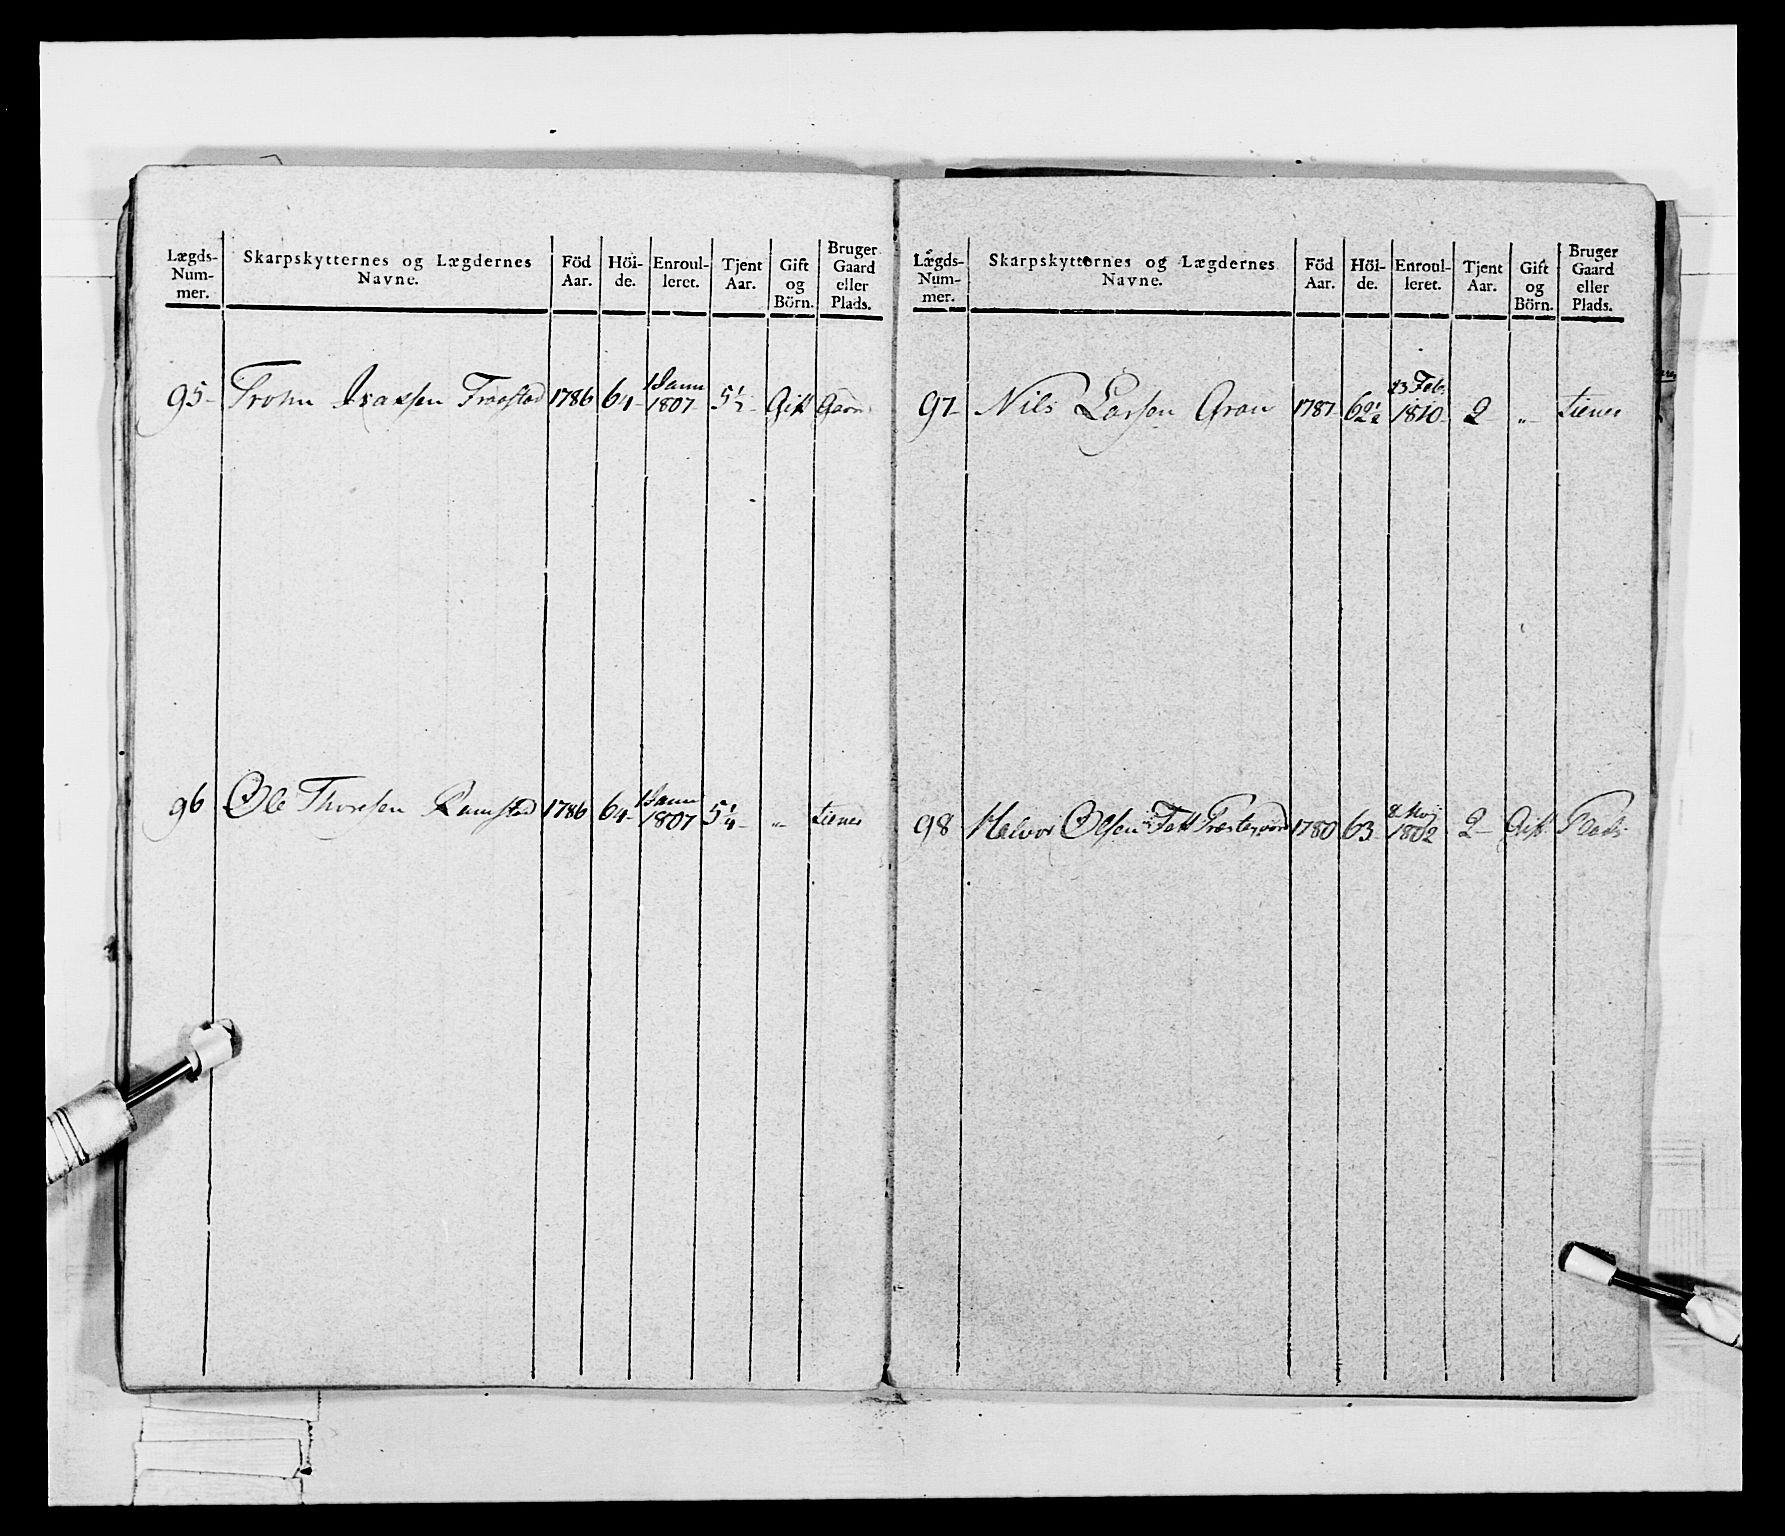 Lægds-Num-mer. Skarpskytternes og Lægdernes Navne. Föd Aar. Höi-de. Enroul-leret. Tjent Aar. Gift og Börn. Bruger Gaard eller Plads.
95 Trohn Isaksen 1786 64 1 Janu 1807 5½ Gift Gaard
96 Ole Thoresen Ramstad 1786 64 1 Janu 1807 5¼ „ tiener
Lægds-Num-mer. Skarpskytternes og Lægdernes Navne. Föd Aar. Höi-de. Enroul-leret. Tjent Aar. Gift og Börn. Bruger Gaard eller Plads.
97 Nils Larsen Gran 1787 62½ 23 Feb. 1810 2 „ tiener
98 Halvor Olsen 1780 63 1802 2 Gift Plads